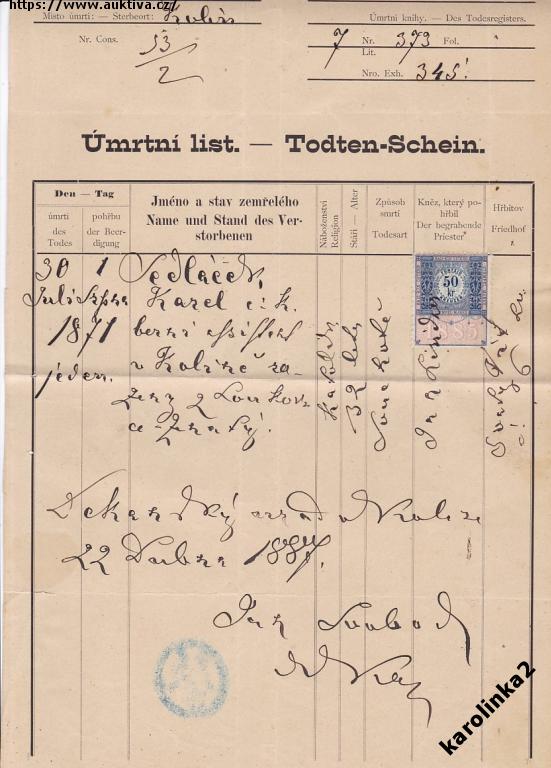 https://www.auktiva.cz/
Místo úmrtí: — Sterbeort: Kolín
Nr. Cons.
53/2
Úmrtní knihy. — Des Todesregisters.
7 Nr. 373 Fol.
Lit.
Nro. Exh. 345.
Úmrtní list. — Todten-Schein.
Den — Tag
úmrtí des Todes
pohřbu der Beerdigung
Jméno a stav zemřelého
Name und Stand des Ver-
storbenen
Náboženství Religion
Stáří — Alter
Způsob smrti Todesart
Kněz, který po-
hřbil
Der begrabende
Priester
Hřbitov
Friedhof
30 1 Sedláček,
Juli Srpna Karel c. k.
1871 berní assistent
jeden. v Kolíně
z
a ženatý.
Katolík
32
Jan
Svatý
50
kr
Děkanský úřad v Kolíně
22 Dubna 1887.
Jan Svoboda
děkan
karolinka2